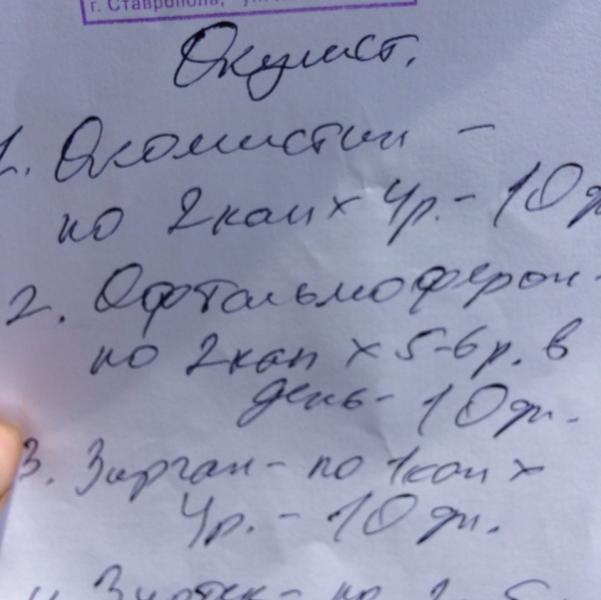 г. Ставрополь,
Окулист.
1. Окомистин -
по 2кап x 4р. - 10д
2. Офтальмоферон -
по 2кап x 5-6р. в
день - 10дн.
3. Зирган - по 1кап x
4р. - 10дн.